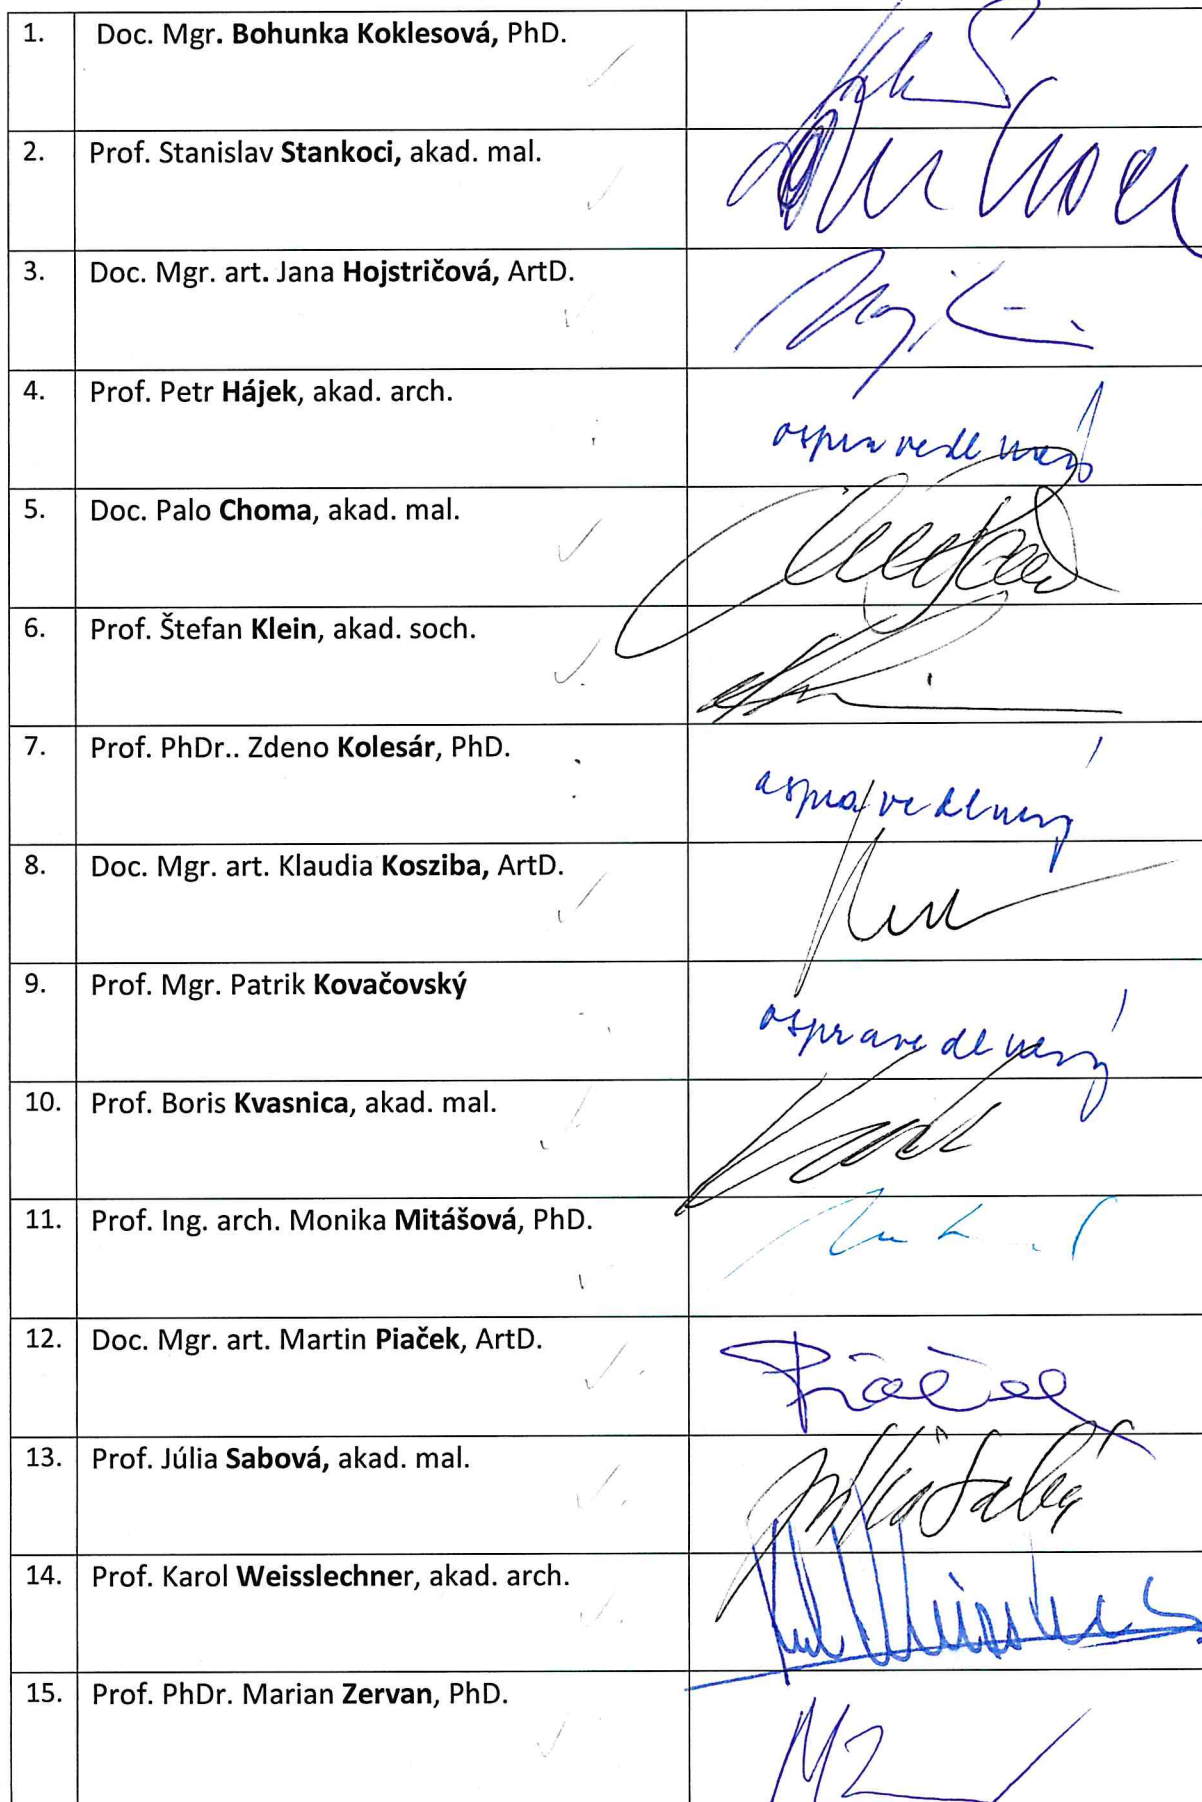 1. Doc. Mgr. Bohunka Koklesová, PhD.
2. Prof. Stanislav Stankoci, akad. mal.
3. Doc. Mgr. art. Jana Hojstričová, ArtD.
4. Prof. Petr Hájek, akad. arch. ospravedlnený
5. Doc. Palo Choma, akad. mal.
6. Prof. Štefan Klein, akad. soch.
7. Prof. PhDr.. Zdeno Kolesár, PhD. ospravedlnený
8. Doc. Mgr. art. Klaudia Kosziba, ArtD.
9. Prof. Mgr. Patrik Kovačovský ospravedlnený
10. Prof. Boris Kvasnica, akad. mal.
11. Prof. Ing. arch. Monika Mitášová, PhD.
12. Doc. Mgr. art. Martin Piaček, ArtD. Piaček
13. Prof. Júlia Sabová, akad. mal.
14. Prof. Karol Weisslechner, akad. arch.
15. Prof. PhDr. Marian Zervan, PhD.